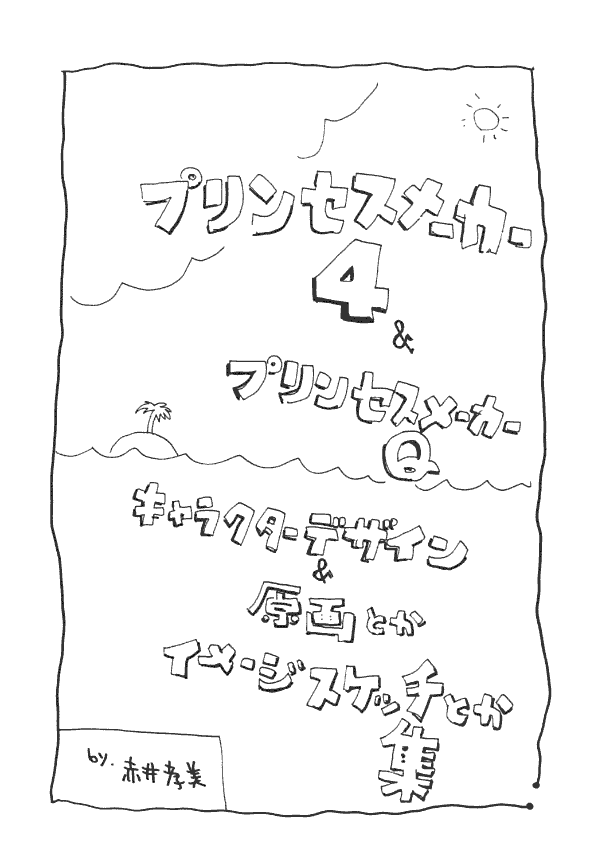 プリンセスメーカー
4
&
プリンセスメーカー
Q
キャラクターデザイン
&
原画とか
イメージスケッチとか
集
by. 赤井孝美